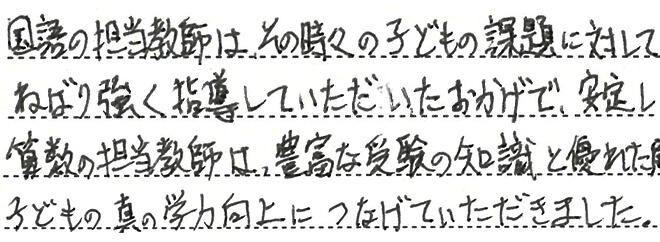 国語の担当教師は、その時々の子どもの課題に対して
ねばり強く指導していただいたおかげで、安定し
算数の担当教師は、豊富な受験の知識と優れた
子どもの真の学力向上につなげていただきました。